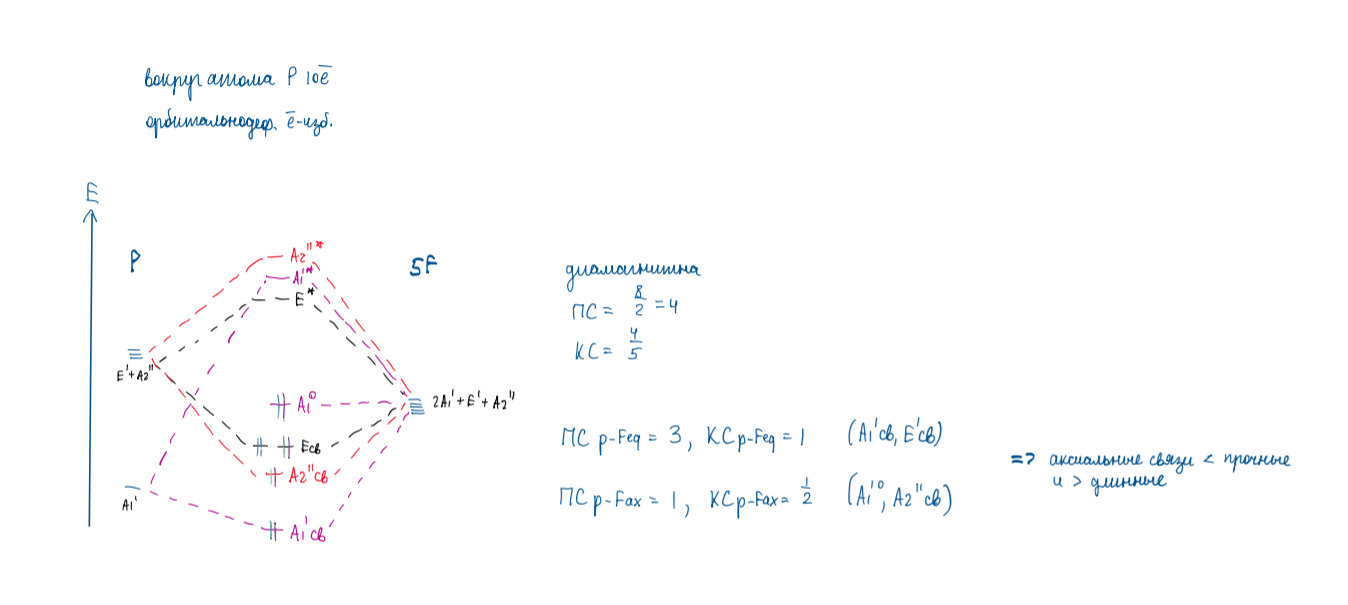 вокруг атома P 10ē
орбитальнодеф. ē-изб.
E
P
5F
A2''*
A1'*
E*
E'+A2''
A1'⁰
2A1'+E'+A2''
Eсв
A2''св
A1'
A1'св
диамагнитна
ПС = 8/2 = 4
КС = 4/5
ПС p-Feq = 3, КС p-Feq = 1 (A1'св, E'св)
ПС p-Fax = 1, КС p-Fax = 1/2 (A1'⁰, A2''св)
=> аксиальные связи < прочные
и > длинные